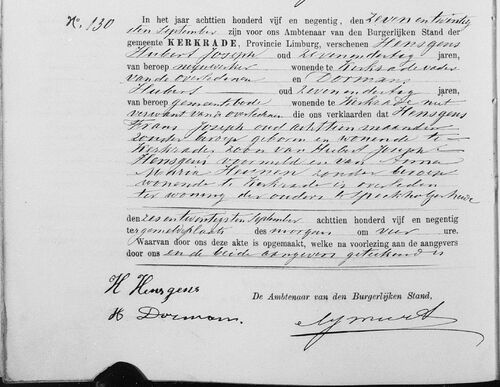 N. 130
In het jaar achttien honderd vijf en negentig, den zeven en twintig
sten September zijn voor ons Ambtenaar van den Burgerlijken Stand der
gemeente KERKRADE, Provincie Limburg, verschenen Hensgens
Hubert Joseph oud zevenendertig jaren,
van beroep wonende te Kerkrade vader
van de overledenen en Dormans
Hubert oud zevenendertig jaren,
van beroep gemeentebode wonende te Kerkrade niet
verwant van de overledenen die ons verklaarden dat Hensgens
Frans Joseph oud achttien maanden
zonder beroep geboren en wonende te
Kerkrade zoon van Hubert Joseph
Hensgens voormeld en van Anna
Maria zonder beroep
wonende te Kerkrade is overleden
ter woning der ouders te Speckholzerheide
den zesentwintigsten September achttien honderd vijf en negentig
ter gemelde plaats des morgens om vier ure.
Waarvan door ons deze akte is opgemaakt, welke na voorlezing aan de aangevers
door ons en de beide aangevers geteekend is
H Hensgens
De Ambtenaar van den Burgerlijken Stand,
H Dormans.